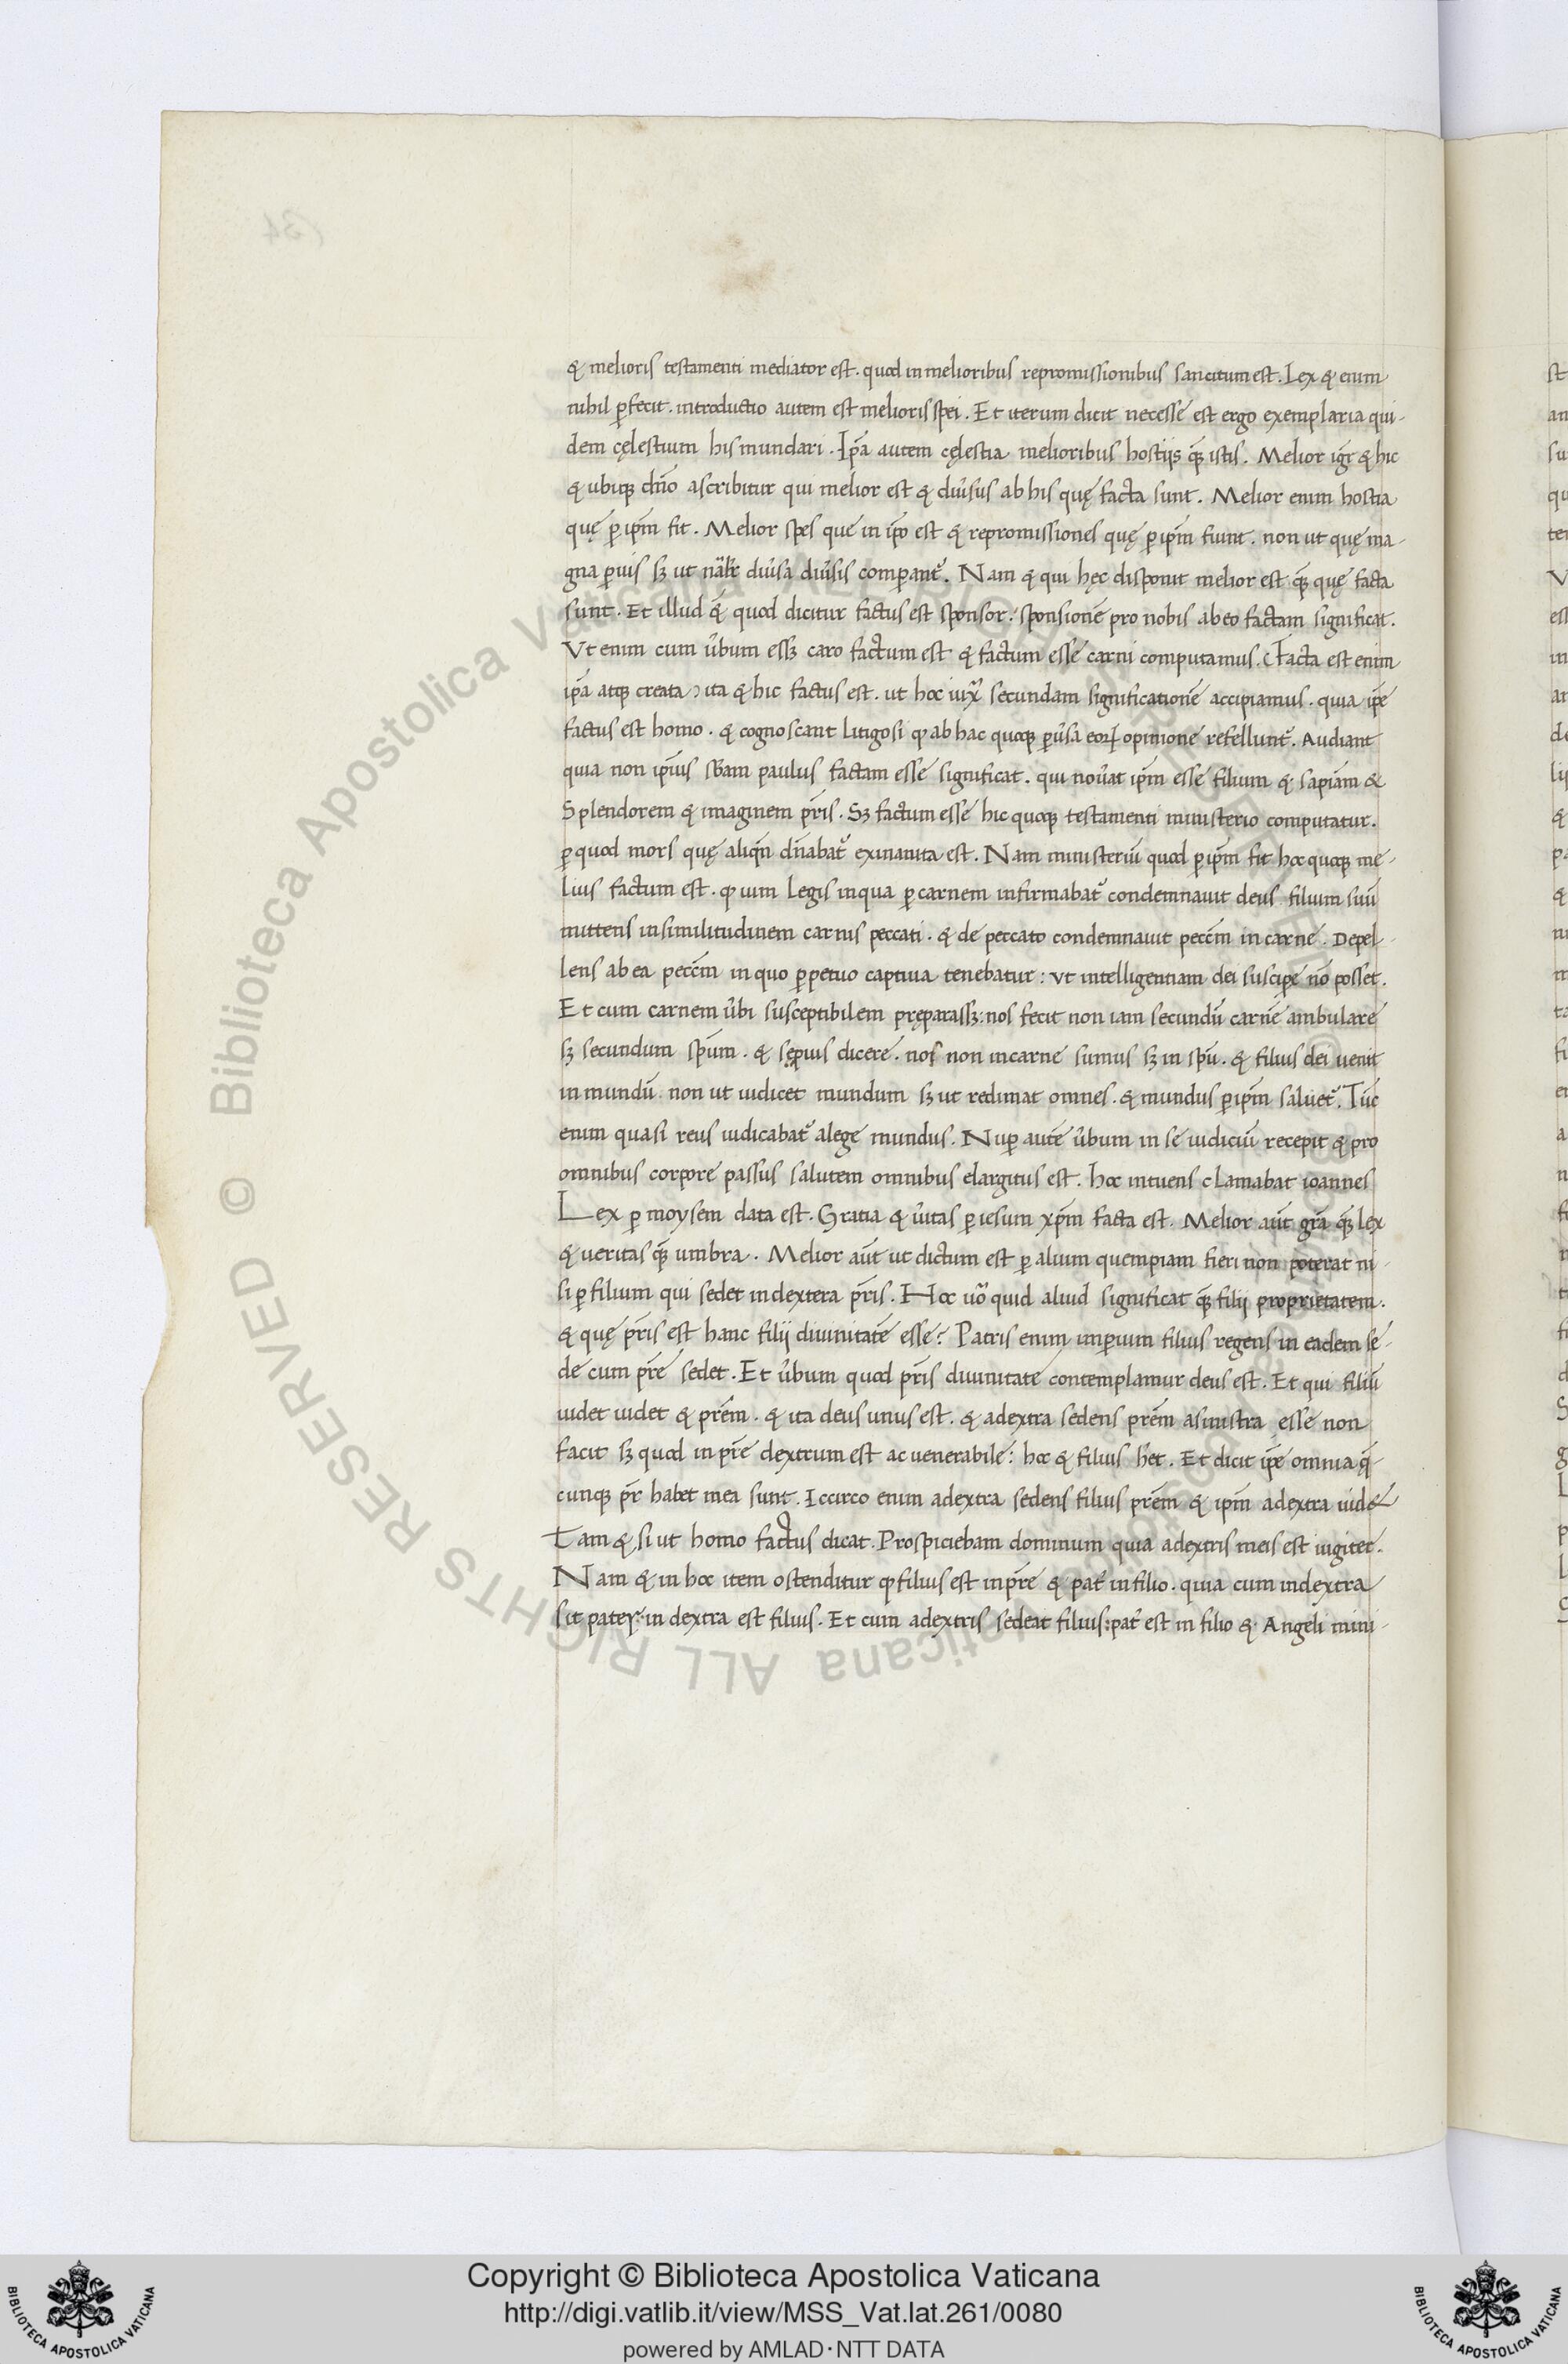 & melioris testamenti mediator est. quod in melioribus repromissionibus sancitum est. Lex & enim
nihil ꝑfecit. introductio autem est melioris spei. Et iterum dicit necesse est ergo exemplaria qui-
dem cęlestium his mundari. Ip̃a autem cęlestia melioribus hostijs q̃ istis. Melior igr̃ & hic
& ubiqꝫ dn̄o ascribitur qui melior est & diũsus ab his quę facta sunt. Melior enim hostia
quę ꝑ ip̃m fit. Melior spes que in ip̃o est & repromissiones quę ꝑ ip̃m fiunt. non ut quę ma-
gna ꝑuis sꝫ ut nãlr diũsa diũsis comparant᷑. Nam & qui hęc disponit melior est q̃ quę facta
sunt. Et illud q̃ quod dicitur factus est sponsor: sponsionē pro nobis ab eo factam significat.
Vt enim cum ũbum essꝫ caro factum est & factum esse carni computamus. Facta est enim
ip̃a atqꝫ creata: ita & hic factus est. ut hoc iux̃ secundam significationē accipiamus. quia ip̃e
factus est homo. & cognoscant litigosi ꝙ ab hac quoqꝫ ꝑũsa eoꝝ opinione refellunt᷑. Audiant
quia non ip̃ius sb̃am paulus factam esse significat. qui noũat ip̃m esse filium & sapiam̃ &
Splendorem & imaginem pr̃is. Sꝫ factum esse hic quoqꝫ testamenti ministerio computatur.
ꝑ quod mors quę aliqñ dñabat᷑ exinanita est. Nam ministeriū quod ꝑ ip̃m fit hoc quoqꝫ me-
lius factum est. ꝙ uim legis in qua ꝑ carnem infirmabat᷑ condemnauit deus filium suū
mittens in similitudinem carnis peccati. & de peccato condemnauit pecc̃m in carne. Depel-
lens ab ea pecc̃m in quo ꝑpetuo captiua tenebatur: ut intelligentiam dei suscipe nō posset.
Et cum carnem ũbi susceptibilem pręparassꝫ: nos fecit non iam secundū carnē ambulare
sꝫ secundum sp̃um. & sępius dicere. nos non in carne sumus sꝫ in sp̃u. & filius dei uenit
in mundū non ut iudicet mundum sꝫ ut redimat omnes. & mundus ꝑ ip̃m saluet᷑. Tūc
enim quasi reus iudicabat᷑ a lege mundus. Nuꝑ autē ũbum in se iudiciū recepit & pro
omnibus corpore passus salutem omnibus elargitus est. hoc intuens clamabat ioannes
Lex ꝑ moysem data est. Gratia & ũitas ꝑ iesum xp̃m facta est. Melior aũt gr̃a q̃ lex
& ueritas q̃ umbra. Melior aũt ut dictum est ꝑ alium quempiam fieri non poterat ni-
si ꝑ filium qui sedet in dextera pr̃is. Hoc uõ quid aliud significat q̃ filij proprietatem.
& quę pr̃is est hanc filij diuinitatē esse? Patris enim imꝑium filius regens in eadem se-
de cum pr̃e sedet. Et ũbum quod pr̃is diuinitate contemplamur deus est. Et qui filiū
uidet uidet & pr̃em. & ita deus unus est. & adextra sedens pr̃em asinistra esse non
facit sꝫ quod in pr̃e dextrum est ac uenerabile: hoc & filius h̃et. Et dicit ip̃e omnia q̃-
cunqꝫ pr̃ habet mea sunt. Iccirco enim adextra sedens filius pr̃em & ip̃m adextra uidet
Tam & si ut homo factus dicat. Prospiciebam dominum quia adextris meis est iugiter.
Nam & in hoc item ostenditur ꝙ filius est in pr̃e & pat̃ in filio. quia cum in dextra
sit pater: in dextra est filius. Et cum adextris sedeat filius: pat̃ est in filio &. Angeli mini-
Copyright © Biblioteca Apostolica Vaticana
http://digi.vatlib.it/view/MSS_Vat.lat.261/0080
powered by AMLAD·NTT DATA
BIBLIOTECA APOSTOLICA VATICANA
BIBLIOTECA APOSTOLICA VATICANA
© Biblioteca Apostolica Vaticana ALL RIGHTS RESERVED